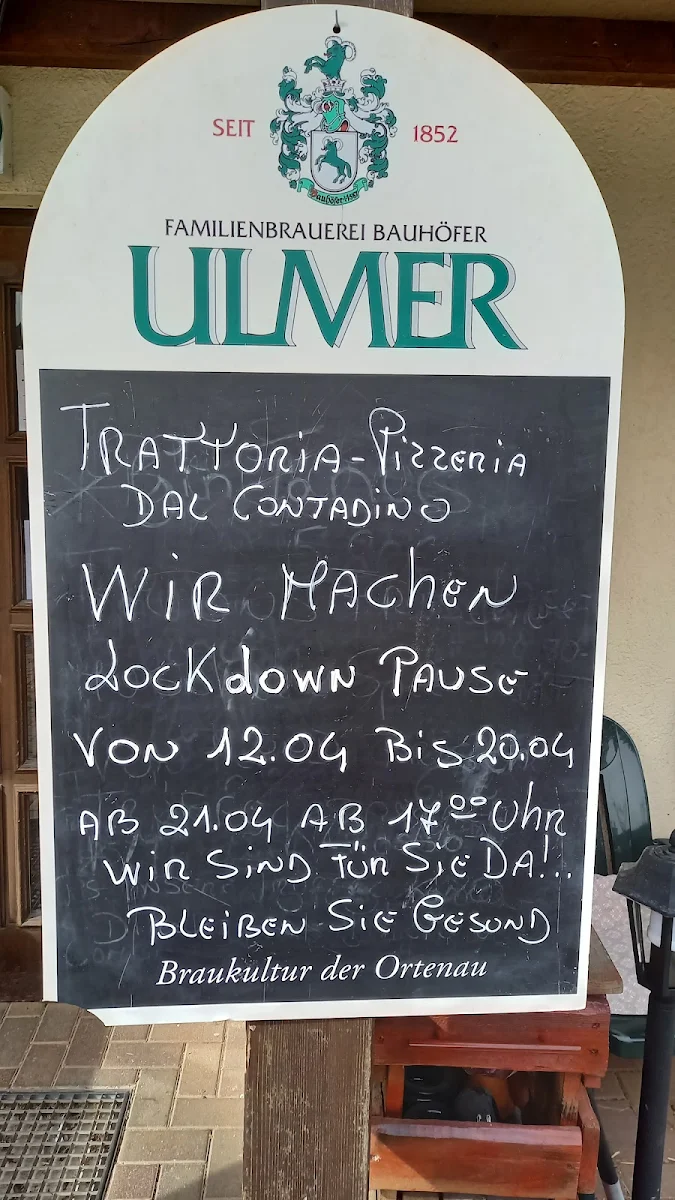 SEIT 1852
FAMILIENBRAUEREI BAUHÖFER
ULMER
TRATTORIA - PIZZERIA
DAL CONTADINO
WIR MACHEN
LOCKDOWN PAUSE
VON 12.04 BIS 20.04
AB 21.04 AB 17⁰⁰ Uhr
WIR SIND FÜR SIE DA!..
BLEIBEN SIE GESOND
Braukultur der Ortenau